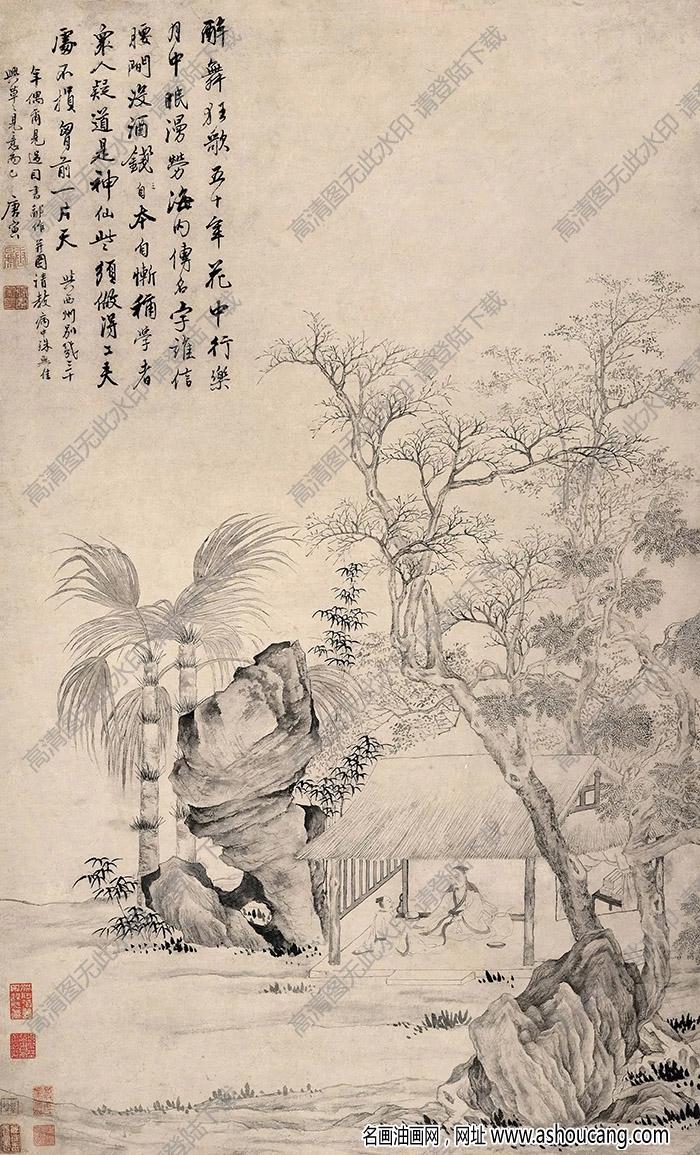 醉舞狂歌五十年花中行樂
月中眠漫勞海内傳名字誰信
腰間沒酒錢書本自慚稱學者
衆人疑道是神仙些須做得工夫
處不損胷前一片天
與西洲別幾三十
年偶爾見過因書鄙作并圖請教病中殊無佳
興草〻見意而已 唐寅
高清图无此水印 请登陆下载
名画油画网,网址 www.ashoucang.com